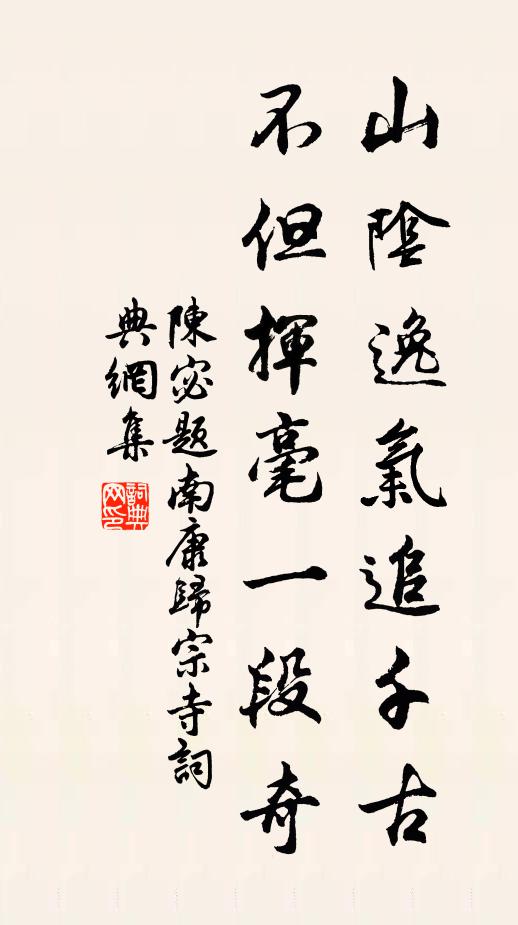 山陰逸氣追千古
不但揮毫一段奇
陳宓題南康歸宗寺詞
典網集
詞典
网印